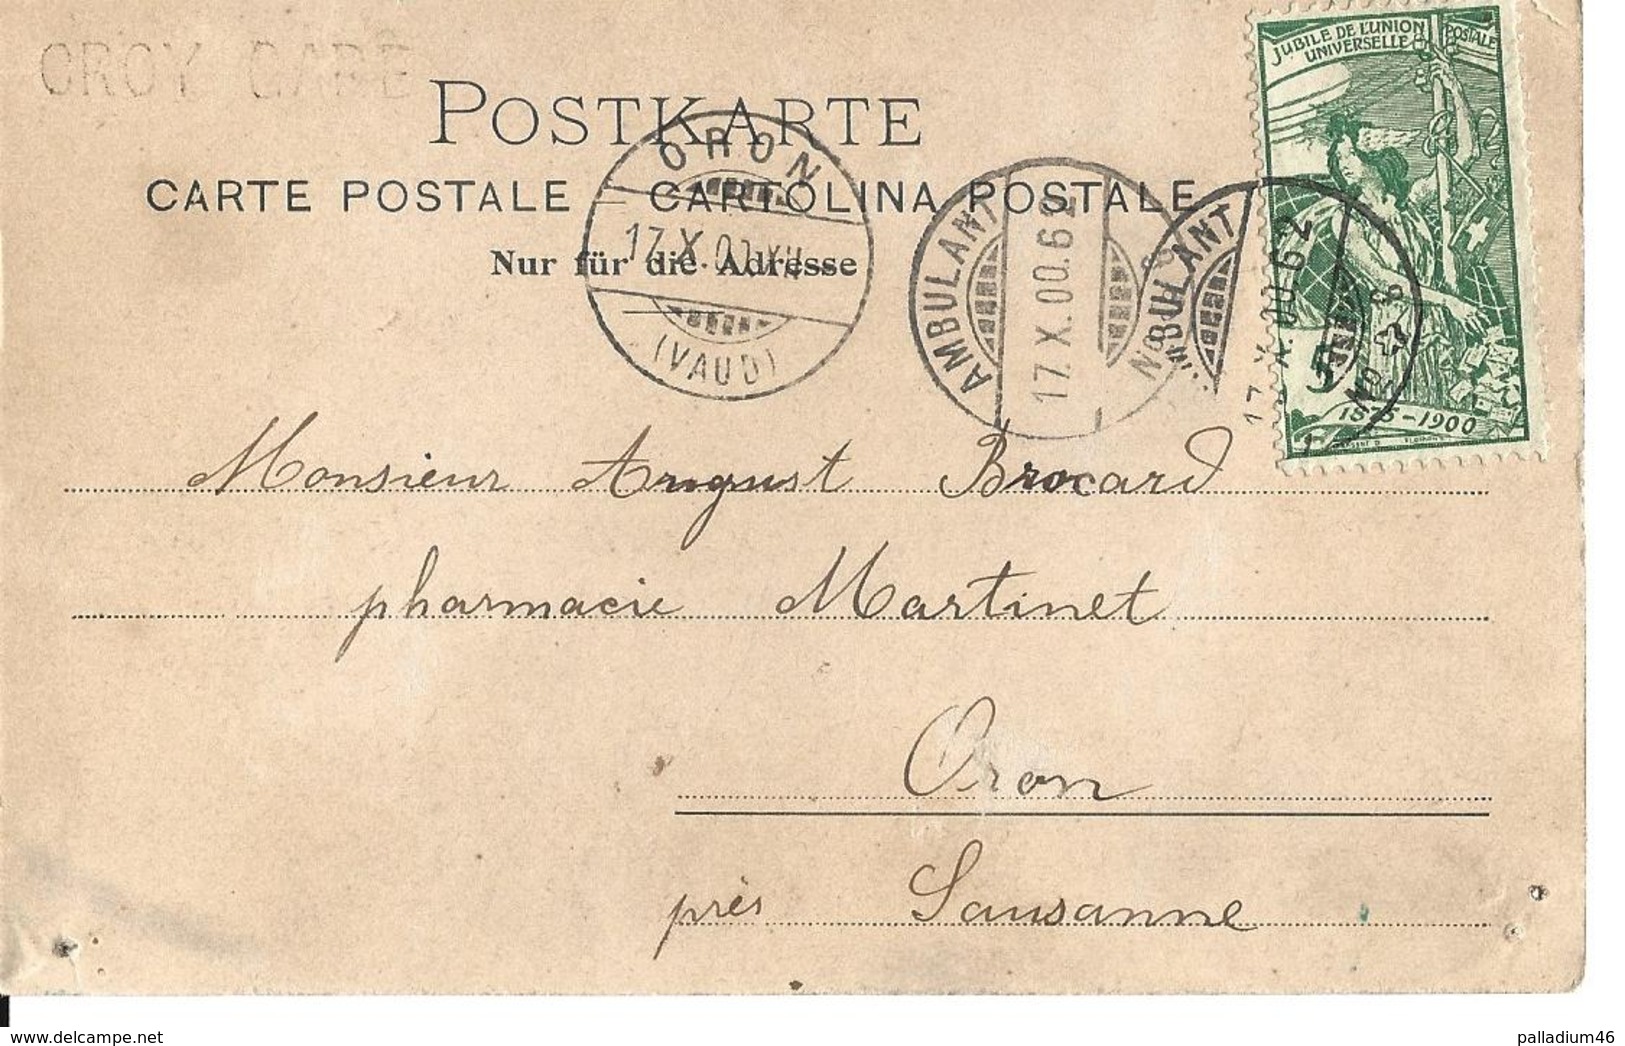 CROY GARE
POSTKARTE
CARTE POSTALE CARTOLINA POSTALE
Nur für die Adresse
ORON
17.X.00.XII
(VAUD)
AMBULANT
17.X.00.62
No
AMBULANT
17.X.00.62
No
JUBILÉ DE L'UNION POSTALE
UNIVERSELLE
5
1875-1900
Monsieur August Brocard
pharmacie Martinet
Oron
près Lausanne
palladium46